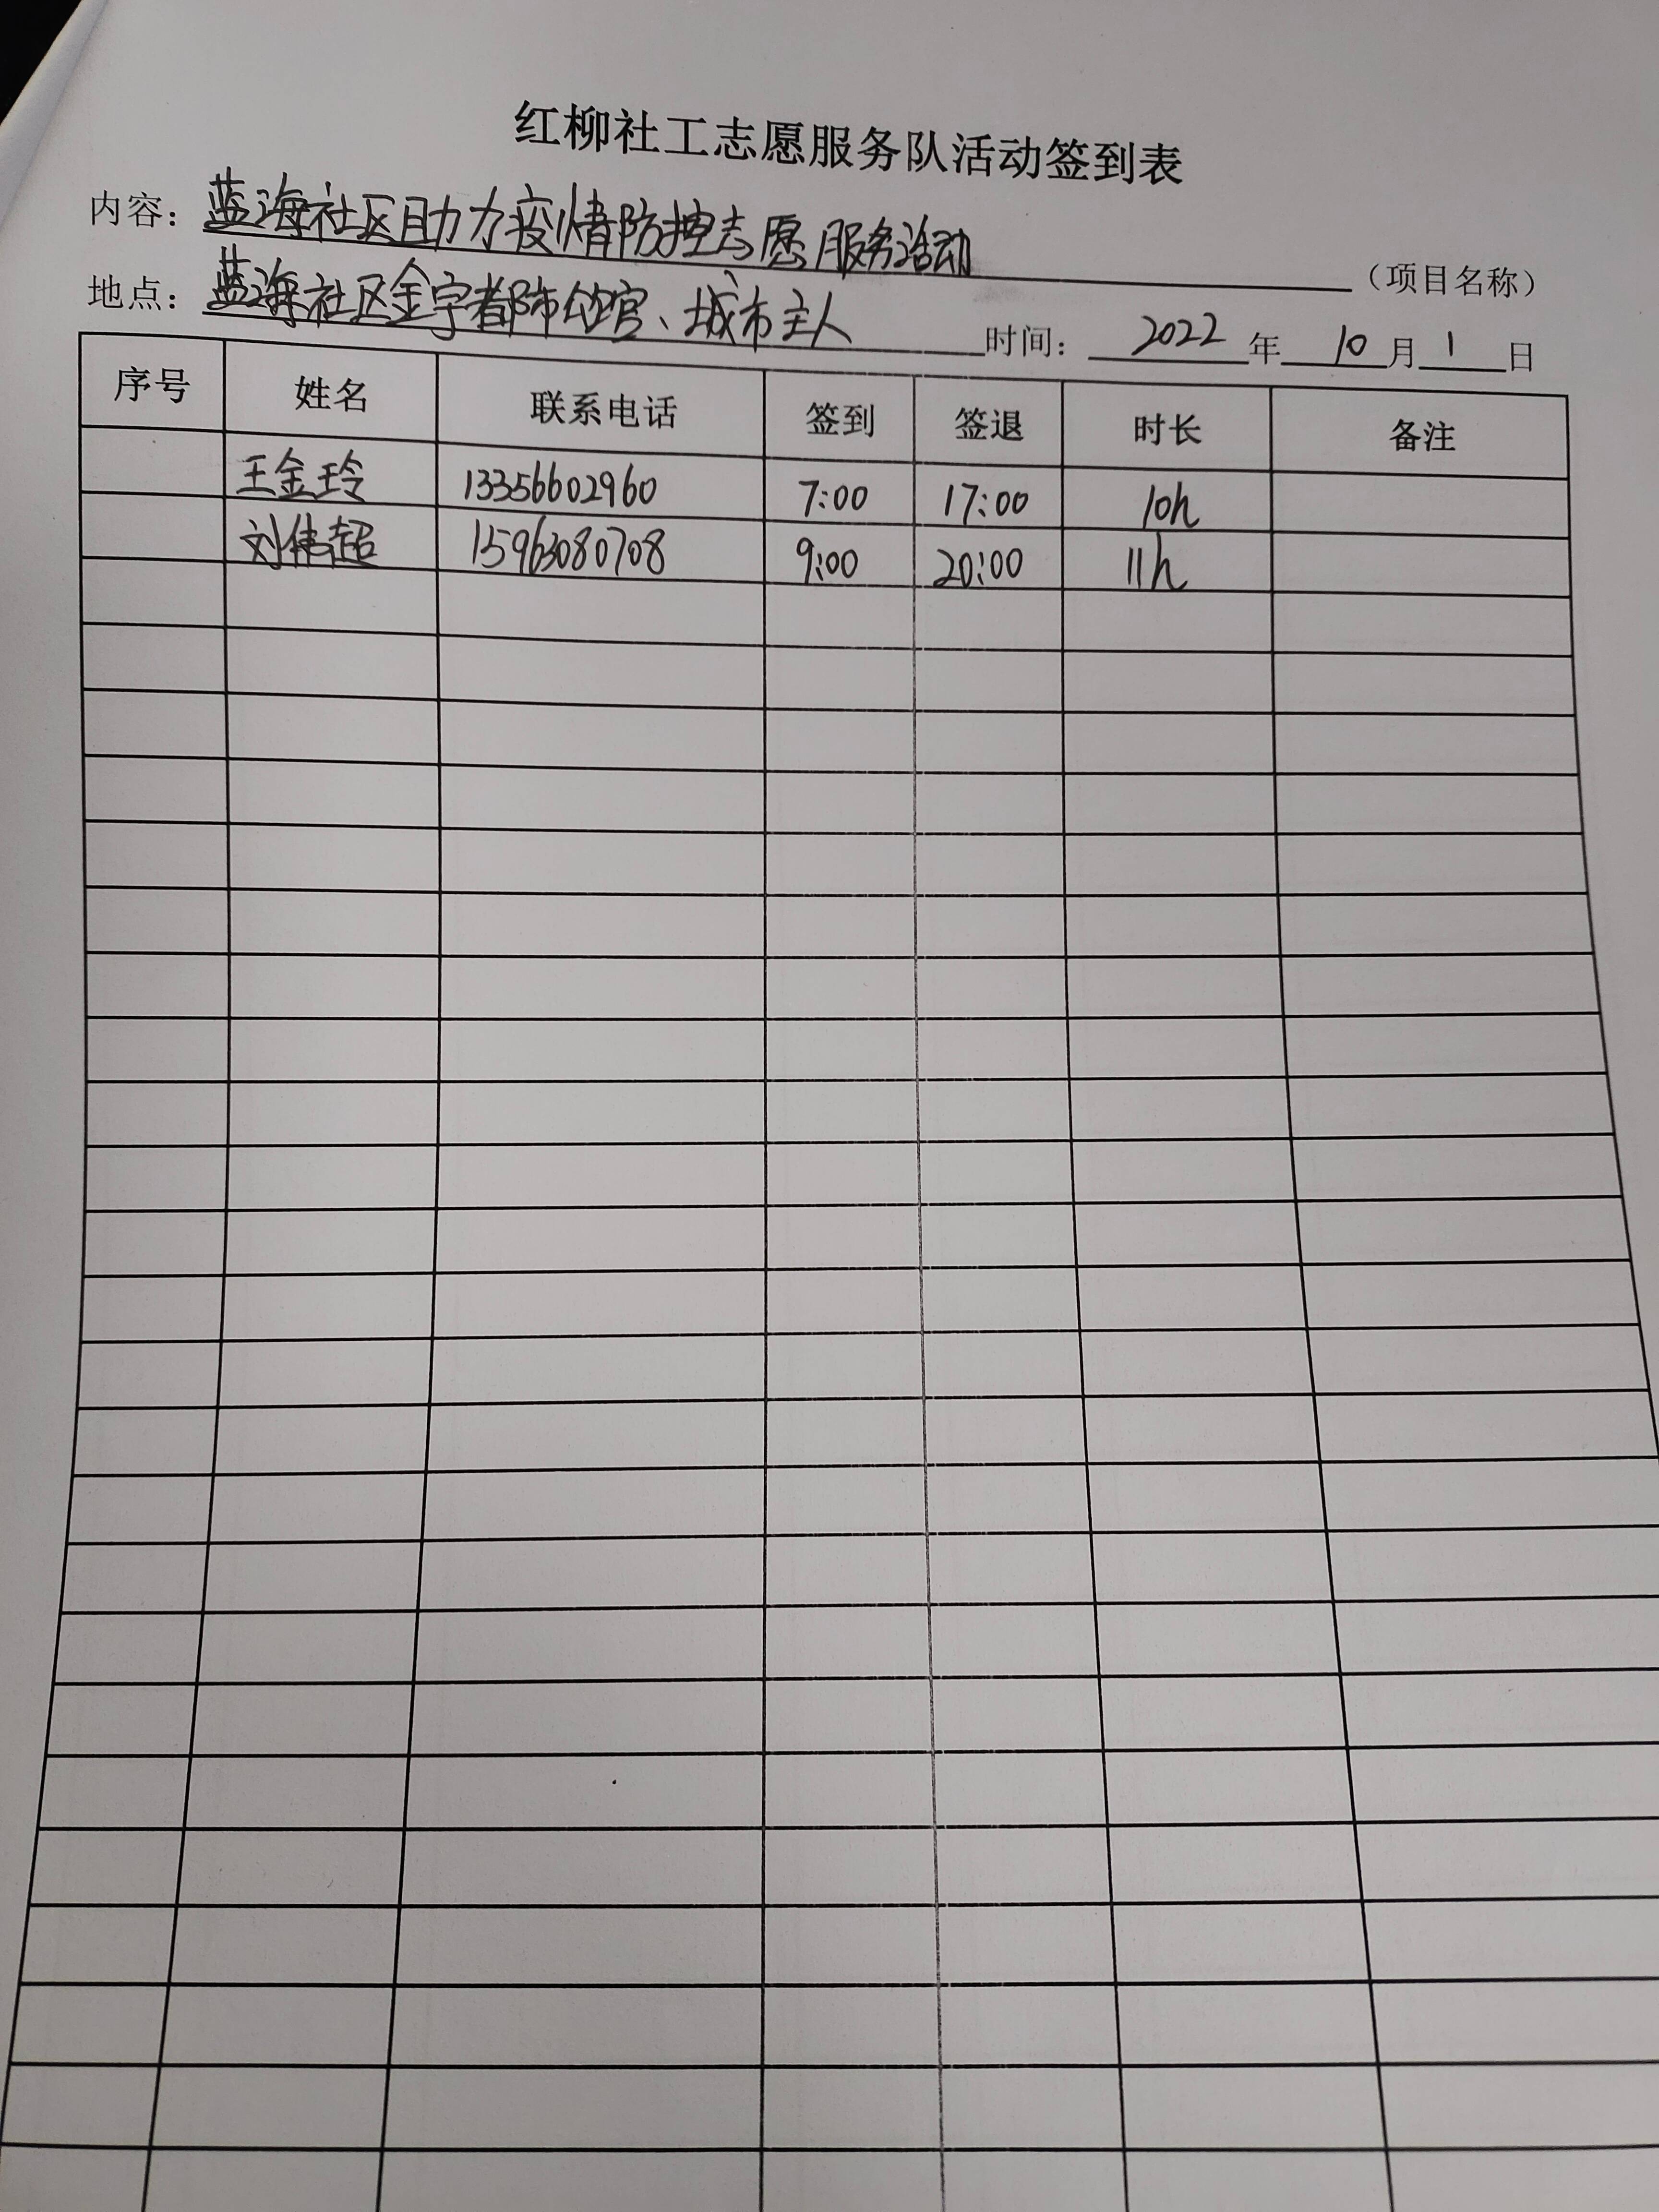 红柳社工志愿服务队活动签到表
内容：蓝海社区助力疫情防控志愿服务活动（项目名称）
地点：蓝海社区金宇都市公馆、城市主人 时间：2022年10月1日
序号 姓名 联系电话 签到 签退 时长 备注
王金玲 13356602960 7:00 17:00 10h
刘伟超 15963080708 9:00 20:00 11h